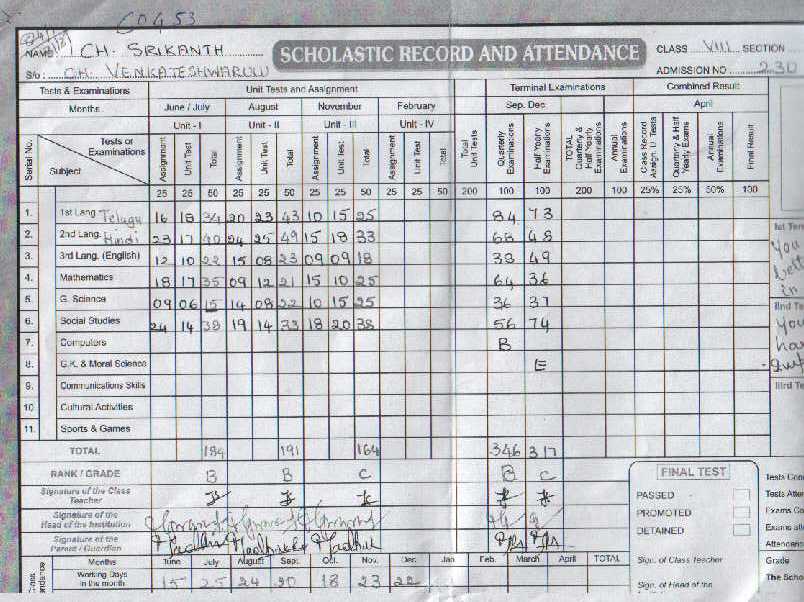 60453
NAME: CH. SRIKANTH
SCHOLASTIC RECORD AND ATTENDANCE
CLASS VIII SECTION
S/o: CH. VENKATESHWARULU
ADMISSION NO 230
Tests & Examinations Unit Tests and Assignment Terminal Examinations Combined Result
Months June / July August November February Sep. Dec. April
Unit - I Unit - II Unit - III Unit - IV
Serial No. Tests or Examinations Subject Assignment Unit Test Total Assignment Unit Test Total Assignment Unit Test Total Assignment Unit Test Total Total Unit Tests Quarterly Examinations Half Yearly Examinations TOTAL Quarterly & Half Yearly Examinations Annual Examinations Class Record Assign. U. Tests Quarterly & Half Yearly Exams Annual Examinations Final Result
25 25 50 25 25 50 25 25 50 25 25 50 200 100 100 200 100 25% 25% 50% 100
1. 1st Lang Telugu 16 18 34 20 23 43 10 15 25 84 73
2. 2nd Lang. Hindi 23 17 40 24 25 49 15 18 33 68 48
3. 3rd Lang. (English) 12 10 22 15 08 23 09 09 18 38 49
4. Mathematics 18 17 35 09 12 21 15 10 25 64 36
5. G. Science 09 06 15 14 08 22 10 15 25 36 37
6. Social Studies 24 14 38 19 14 33 18 20 38 56 74
7. Computers B
8. G.K. & Moral Science E
9. Communications Skills
10 Cultural Activities
11. Sports & Games
TOTAL 184 191 164 346 317
RANK / GRADE B B C B C
Signature of the Class Teacher
Signature of the Head of the Institution
Signature of the Parent / Guardian
Months June July August Sept. Oct. Nov. Dec. Jan. Feb. March April TOTAL
Working Days in the month 15 25 24 20 18 23 22
FINAL TEST
PASSED
PROMOTED
DETAINED
Sign. of Class Teacher
Sign. of Head of the
Ist Ter
You
bett
in
IInd Te
You
ha
IIIrd Te
Tests Con
Tests Atte
Exams Co
Exams att
Attendanc
Grade
The Scho